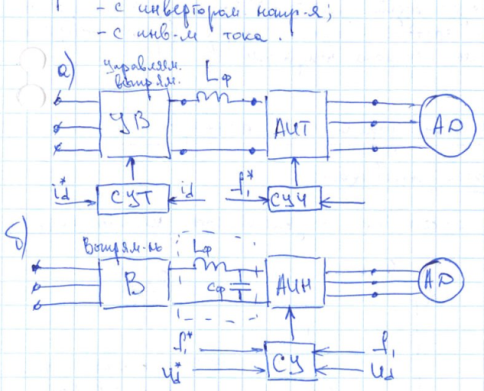 - с инвертором напр-я;
- с инв-м тока.
а)
управляем.
выпрям.
Lф
УВ
АИТ
АД
id*
СУТ
id
f1*
СУЧ
б)
Выпрям-ль
Lф
В
Cф
+
АИН
АД
f1*
Ud*
СУ
f1
Ud